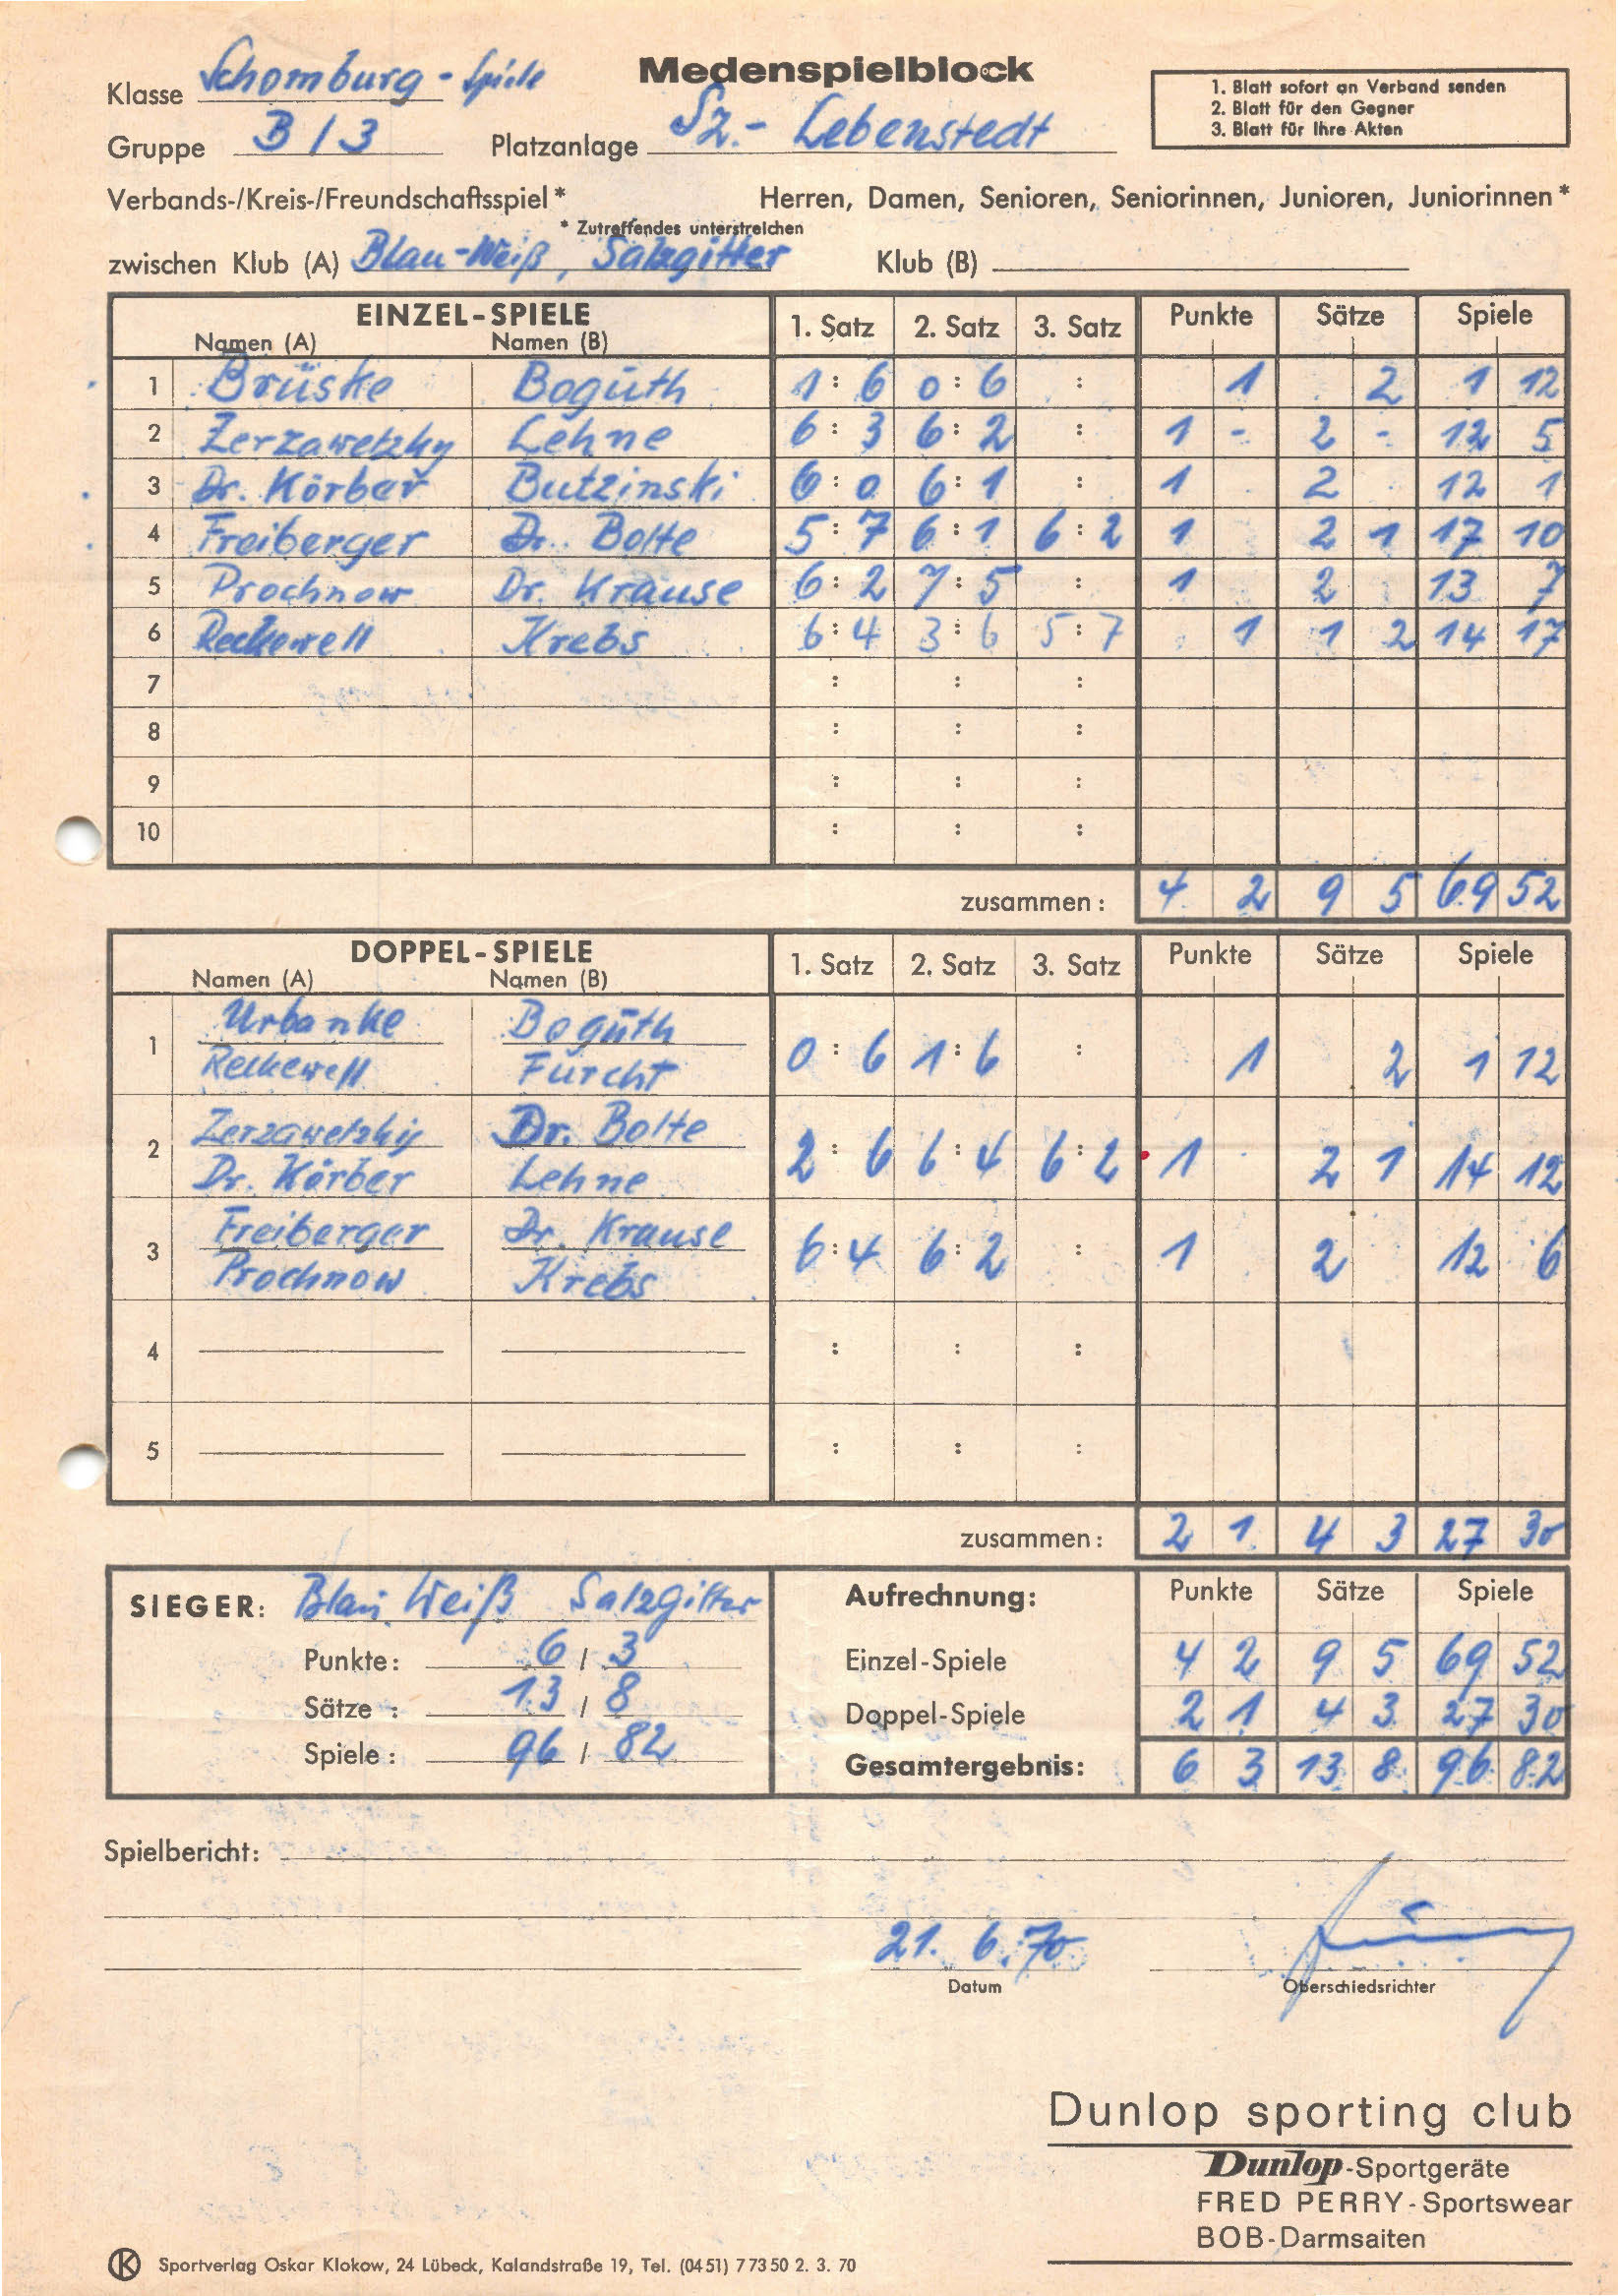 Medenspielblock
Klasse Schomburg - Spiele
1. Blatt sofort an Verband senden
2. Blatt für den Gegner
3. Blatt für Ihre Akten
Gruppe B / 3 Platzanlage Sz.- Lebenstedt
Verbands-/Kreis-/Freundschaftsspiel* Herren, Damen, Senioren, Seniorinnen, Junioren, Juniorinnen*
* Zutreffendes unterstreichen
zwischen Klub (A) Blau-Weiß, Salzgitter Klub (B)
EINZEL-SPIELE 1. Satz 2. Satz 3. Satz Punkte Sätze Spiele
Namen (A) Namen (B)
1 Brüske Boguth 1:6 0:6 : 1 2 1 12
2 Zerzawetzky Lehne 6:3 6:2 : 1 - 2 - 12 5
3 Dr. Körber Butzinski 6:0 6:1 : 1 2 12 1
4 Freiberger Dr. Bolte 5:7 6:1 6:2 1 2 1 17 10
5 Prochnow Dr. Krause 6:2 7:5 : 1 2 13 7
6 Reckewell Krebs 6:4 3:6 5:7 1 1 2 14 17
7 : : :
8 : : :
9 : : :
10 : : :
zusammen: 4 2 9 5 69 52
DOPPEL-SPIELE 1. Satz 2. Satz 3. Satz Punkte Sätze Spiele
Namen (A) Namen (B)
Urbanke Boguth
1 0:6 1:6 : 1 2 1 12
Reckewell Furcht
Zerzawetzky Dr. Bolte
2 2:6 6:4 6:2 1 2 1 14 12
Dr. Körber Lehne
Freiberger Dr. Krause
3 6:4 6:2 : 1 2 12 6
Prochnow Krebs
4 : : :
5 : : :
zusammen: 2 1 4 3 27 30
SIEGER: Blau Weiß Salzgitter Aufrechnung: Punkte Sätze Spiele
Punkte: 6 / 3 Einzel-Spiele 4 2 9 5 69 52
Sätze: 13 / 8 Doppel-Spiele 2 1 4 3 27 30
Spiele: 96 / 82 Gesamtergebnis: 6 3 13 8 96 82
Spielbericht:
21. 6. 70
Datum Oberschiedsrichter
Dunlop sporting club
Dunlop-Sportgeräte
FRED PERRY-Sportswear
BOB-Darmsaiten
K Sportverlag Oskar Klokow, 24 Lübeck, Kalandstraße 19, Tel. (0451) 77350 2. 3. 70